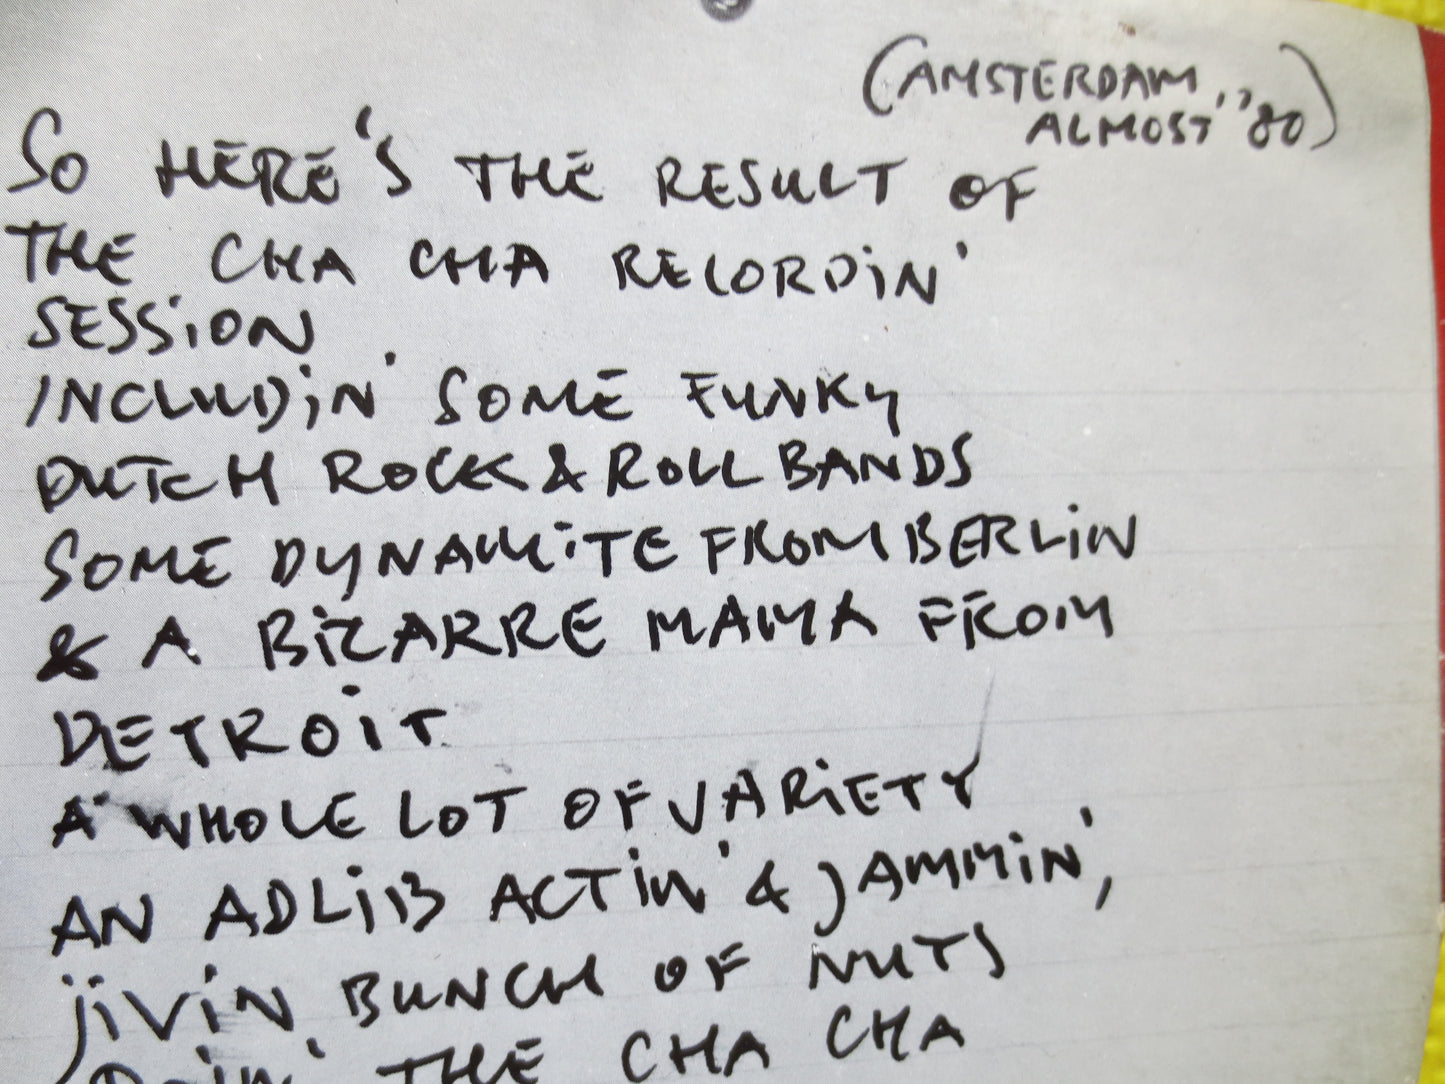 (AMSTERDAM,
ALMOST '80)
SO HERE'S THE RESULT OF
THE CHA CHA RECORDIN'
SESSION
INCLUDIN' SOME FUNKY
DUTCH ROCK & ROLL BANDS
SOME DYNAMITE FROM BERLIN
& A BIZARRE MAMA FROM
DETROIT
A WHOLE LOT OF VARIETY
AN ADLIB ACTIN' & JAMMIN',
JIVIN BUNCH OF NUTS
DOIN' THE CHA CHA